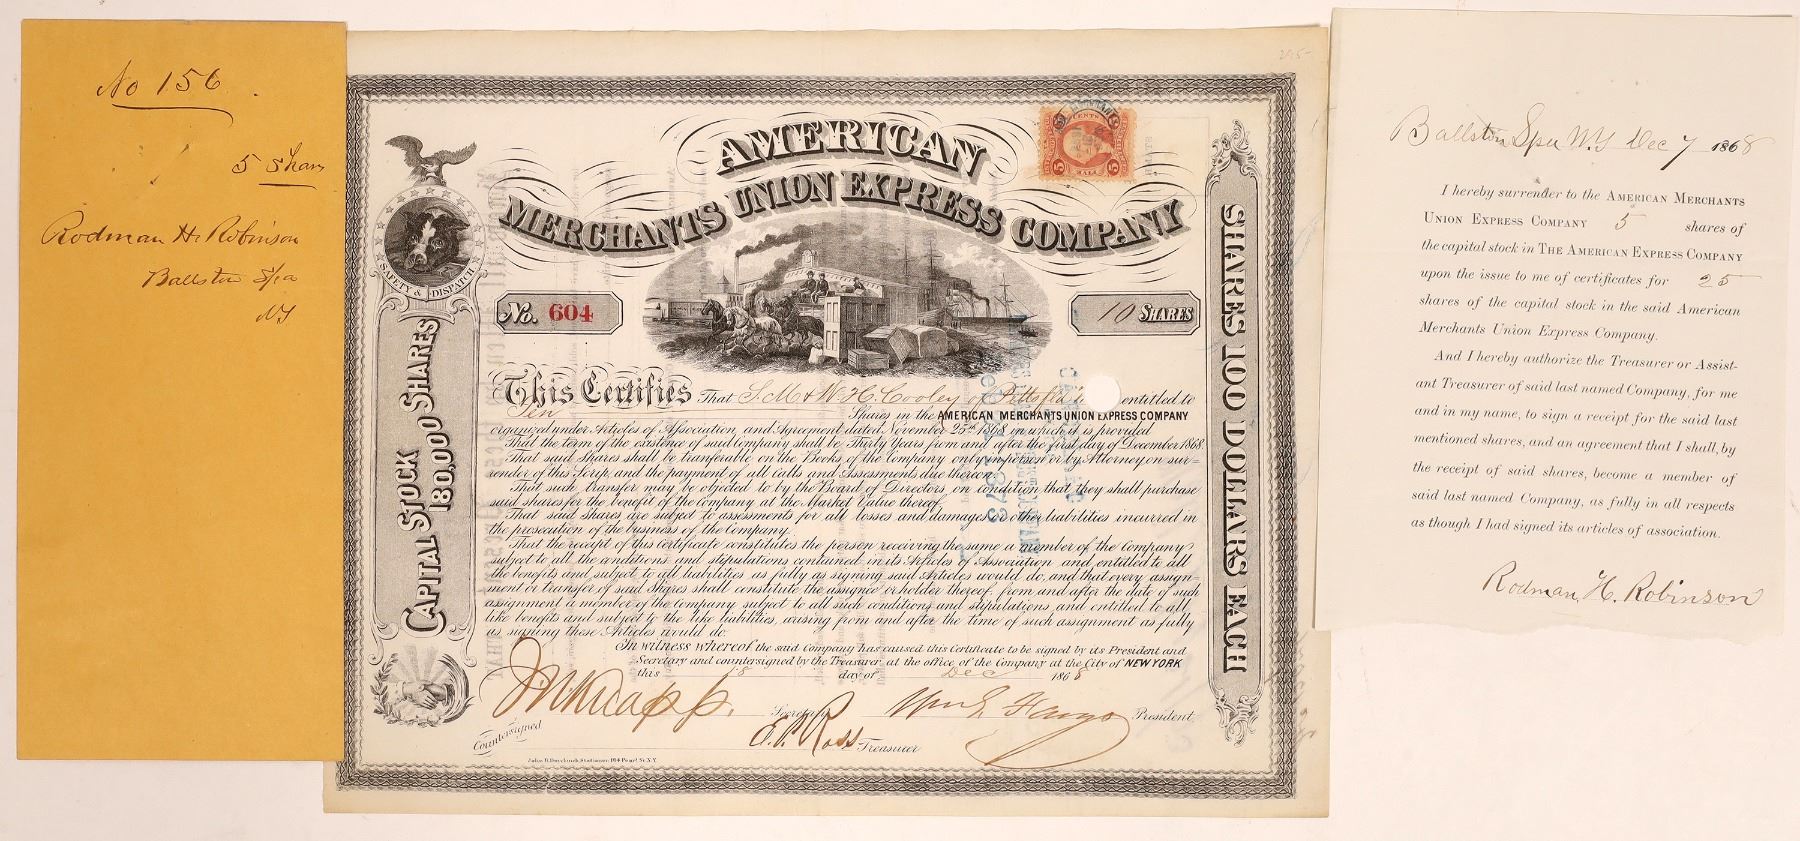 No 156
5 Shares
Rodman H. Robinson
Ballston Spa
NY
295-
AMERICAN
MERCHANTS UNION EXPRESS COMPANY
5 CENTS 5
SAFETY & DISPATCH
CAPITAL STOCK
180,000 SHARES
SHARES 100 DOLLARS EACH
No. 604
10 SHARES
This Certifies That S. M & W. H. Cooley of Pittsfield entitled to
Ten Shares in the AMERICAN MERCHANTS UNION EXPRESS COMPANY
organized under Articles of Association, and Agreement dated, November 25th 1868 in which it is provided
That the term of the existence of said Company shall be Thirty Years from and after the first day of December 1868.
That said Shares shall be transferable on the Books of the Company only in person or by Attorney on sur-
render of this Scrip, and the payment of all Calls and Assessments due thereon.
That such transfer may be objected to by the Board of Directors, on condition that they shall purchase
said shares for the benefit of the Company at the Market Value thereof.
That said shares are subject to assessments for all losses and damages or other liabilities incurred in
the prosecution of the business of the Company.
That the receipt of this Certificate constitutes the person receiving the same a member of the Company
subject to all the conditions and stipulations contained in its Articles of Association and entitled to all
the benefits and subject to all liabilities as fully as signing said Articles would do, and that every assign-
ment or transfer of said Shares shall constitute the assignee or holder thereof, from and after the date of such
assignment a member of the company subject to all such conditions and stipulations, and entitled to all
like benefits and subject to the like liabilities, arising from and after the time of such assignment as fully
as signing these Articles would do.
In witness whereof the said Company has caused this Certificate to be signed by its President and
Secretary and countersigned by the Treasurer, at the office of the Company at the City of NEW YORK
this 18 day of Dec 1868
J. N. Knapp Secretary Wm G. Fargo President
Countersigned
E. P. Ross Treasurer
CANCELLED
1873
Ballston Spa N.Y Dec 7 1868
I hereby surrender to the AMERICAN MERCHANTS
UNION EXPRESS COMPANY 5 shares of
the capital stock in THE AMERICAN EXPRESS COMPANY
upon the issue to me of certificates for 25
shares of the capital stock in the said American
Merchants Union Express Company.
And I hereby authorize the Treasurer or Assist-
ant Treasurer of said last named Company, for me
and in my name, to sign a receipt for the said last
mentioned shares, and an agreement that I shall, by
the receipt of said shares, become a member of
said last named Company, as fully in all respects
as though I had signed its articles of association.
Rodman. H. Robinson